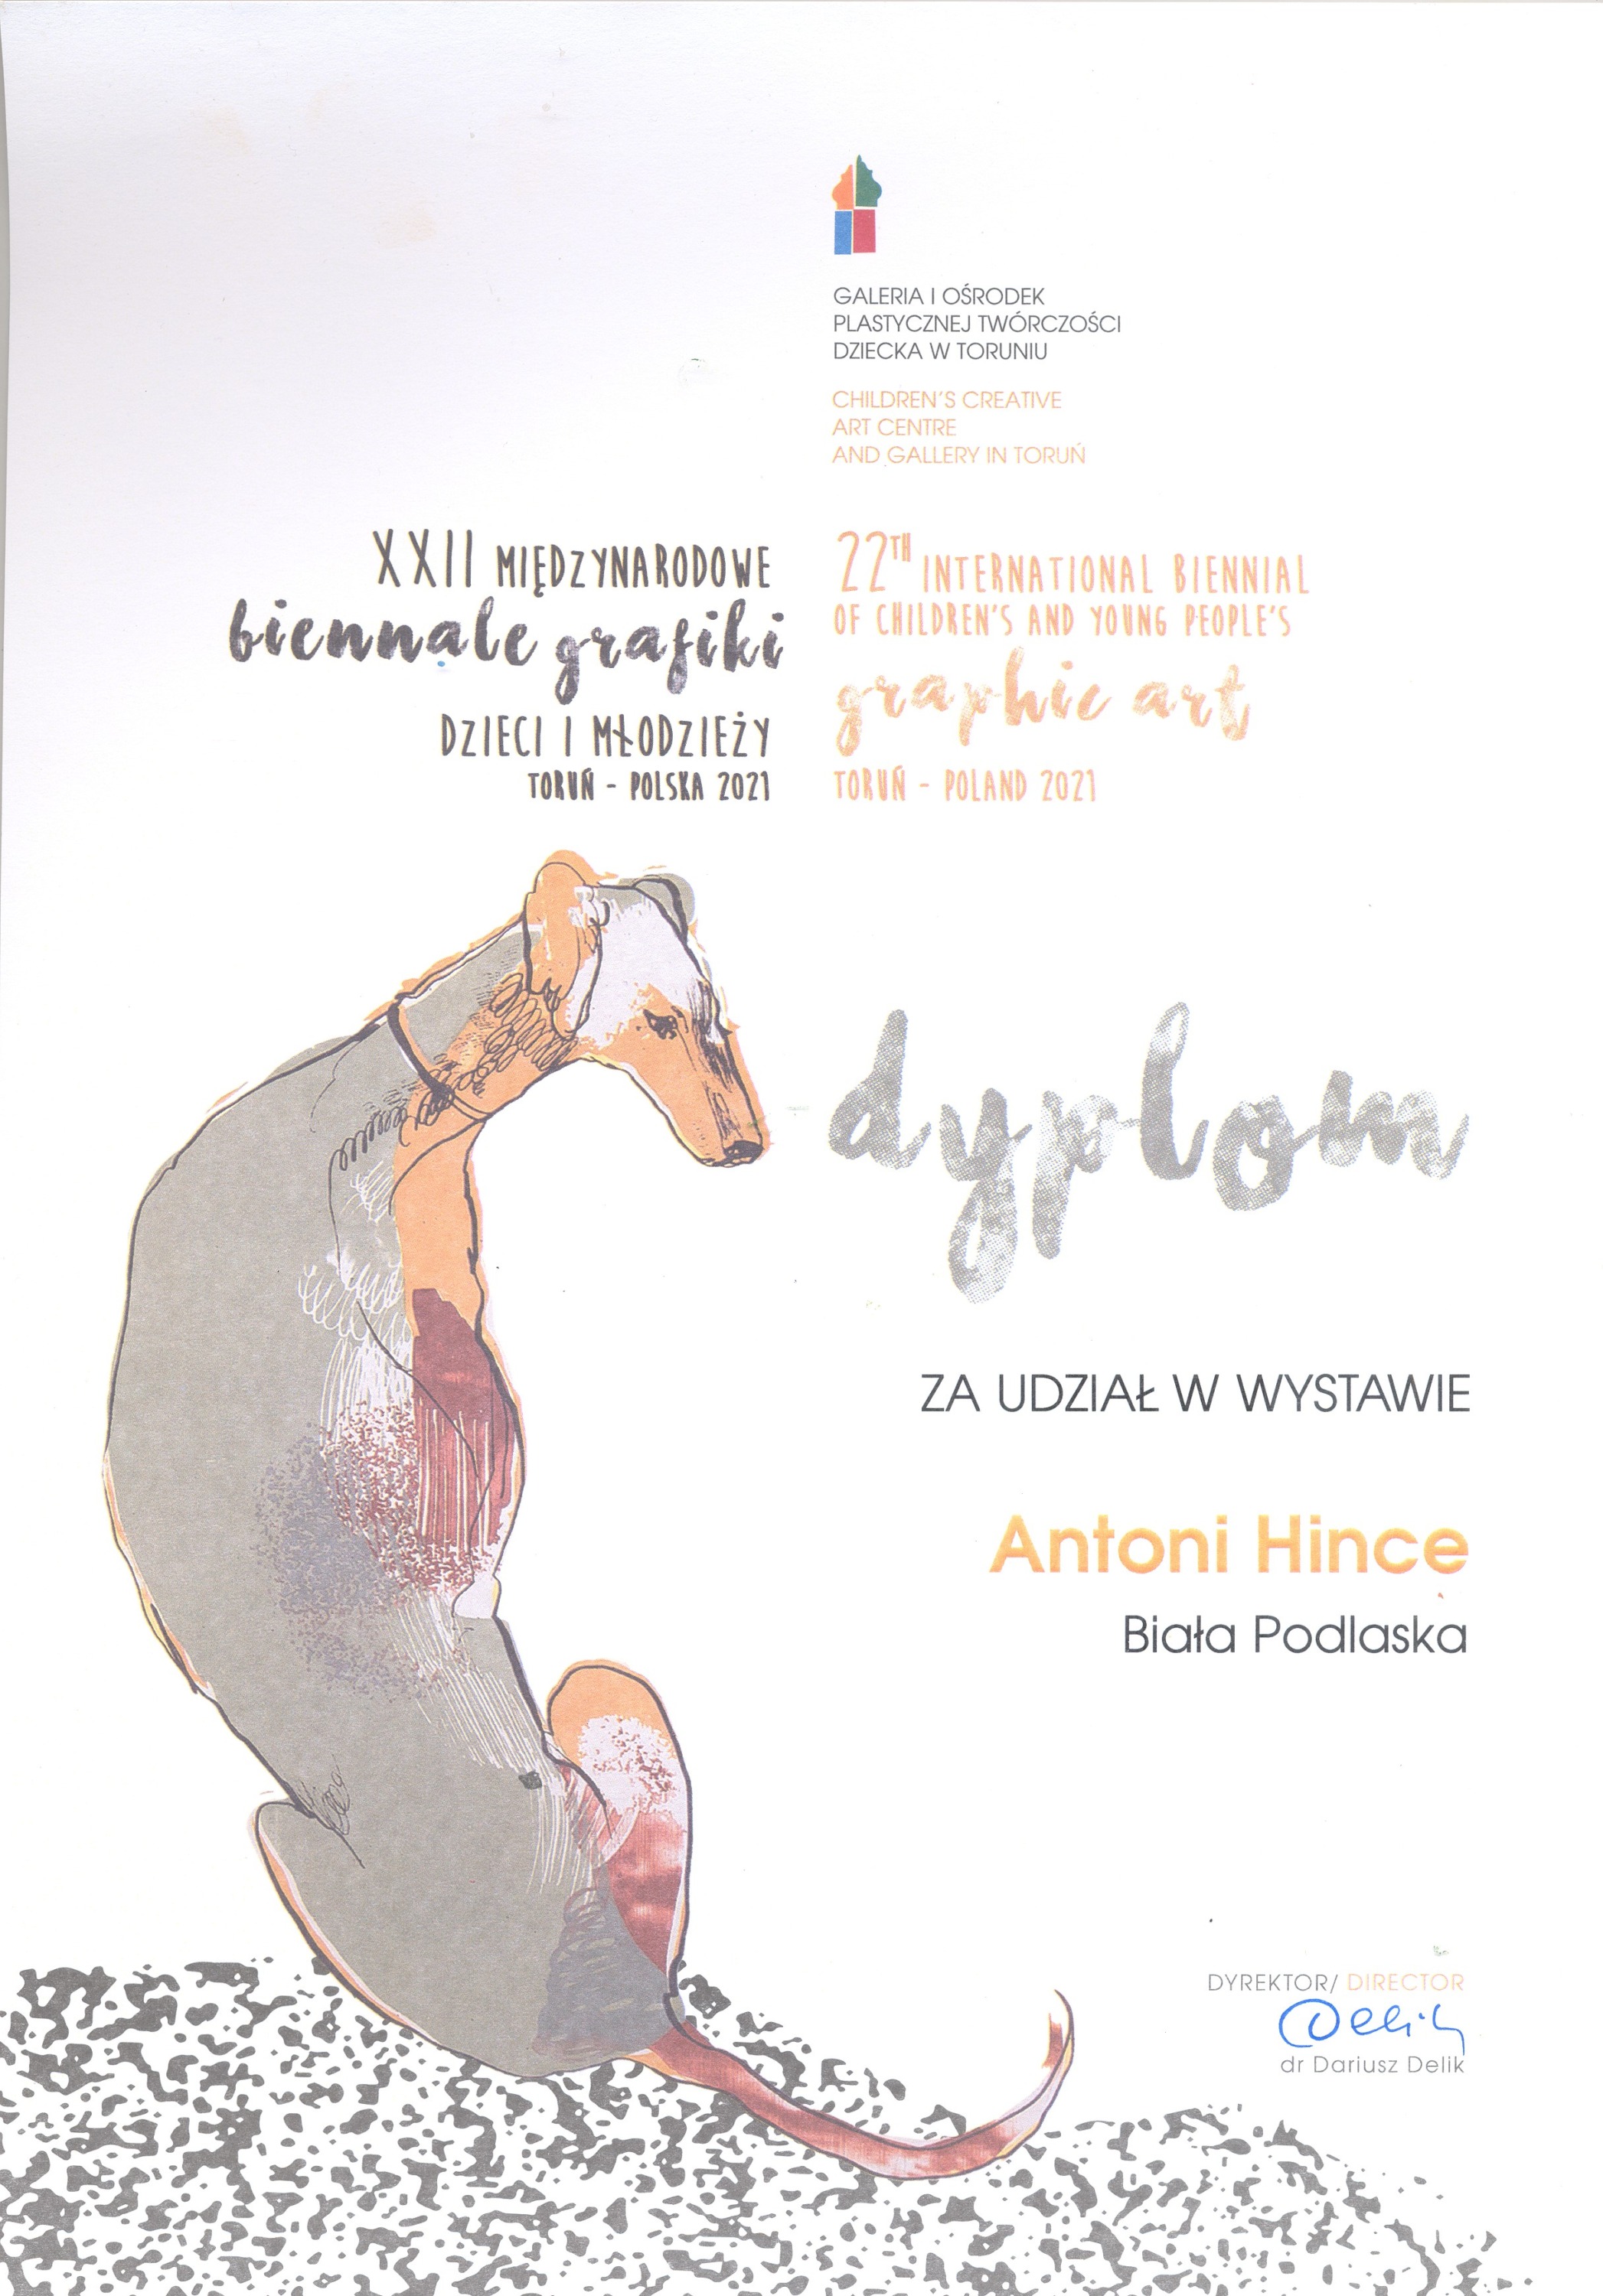 GALERIA I OŚRODEK
PLASTYCZNEJ TWÓRCZOŚCI
DZIECKA W TORUNIU
CHILDREN'S CREATIVE
ART CENTRE
AND GALLERY IN TORUŃ
XXII MIĘDZYNARODOWE
biennale grafiki
DZIECI I MŁODZIEŻY
TORUŃ - POLSKA 2021
22TH INTERNATIONAL BIENNIAL
OF CHILDREN'S AND YOUNG PEOPLE'S
graphic art
TORUŃ - POLAND 2021
dyplom
ZA UDZIAŁ W WYSTAWIE
Antoni Hince
Biała Podlaska
DYREKTOR/ DIRECTOR
Delik
dr Dariusz Delik